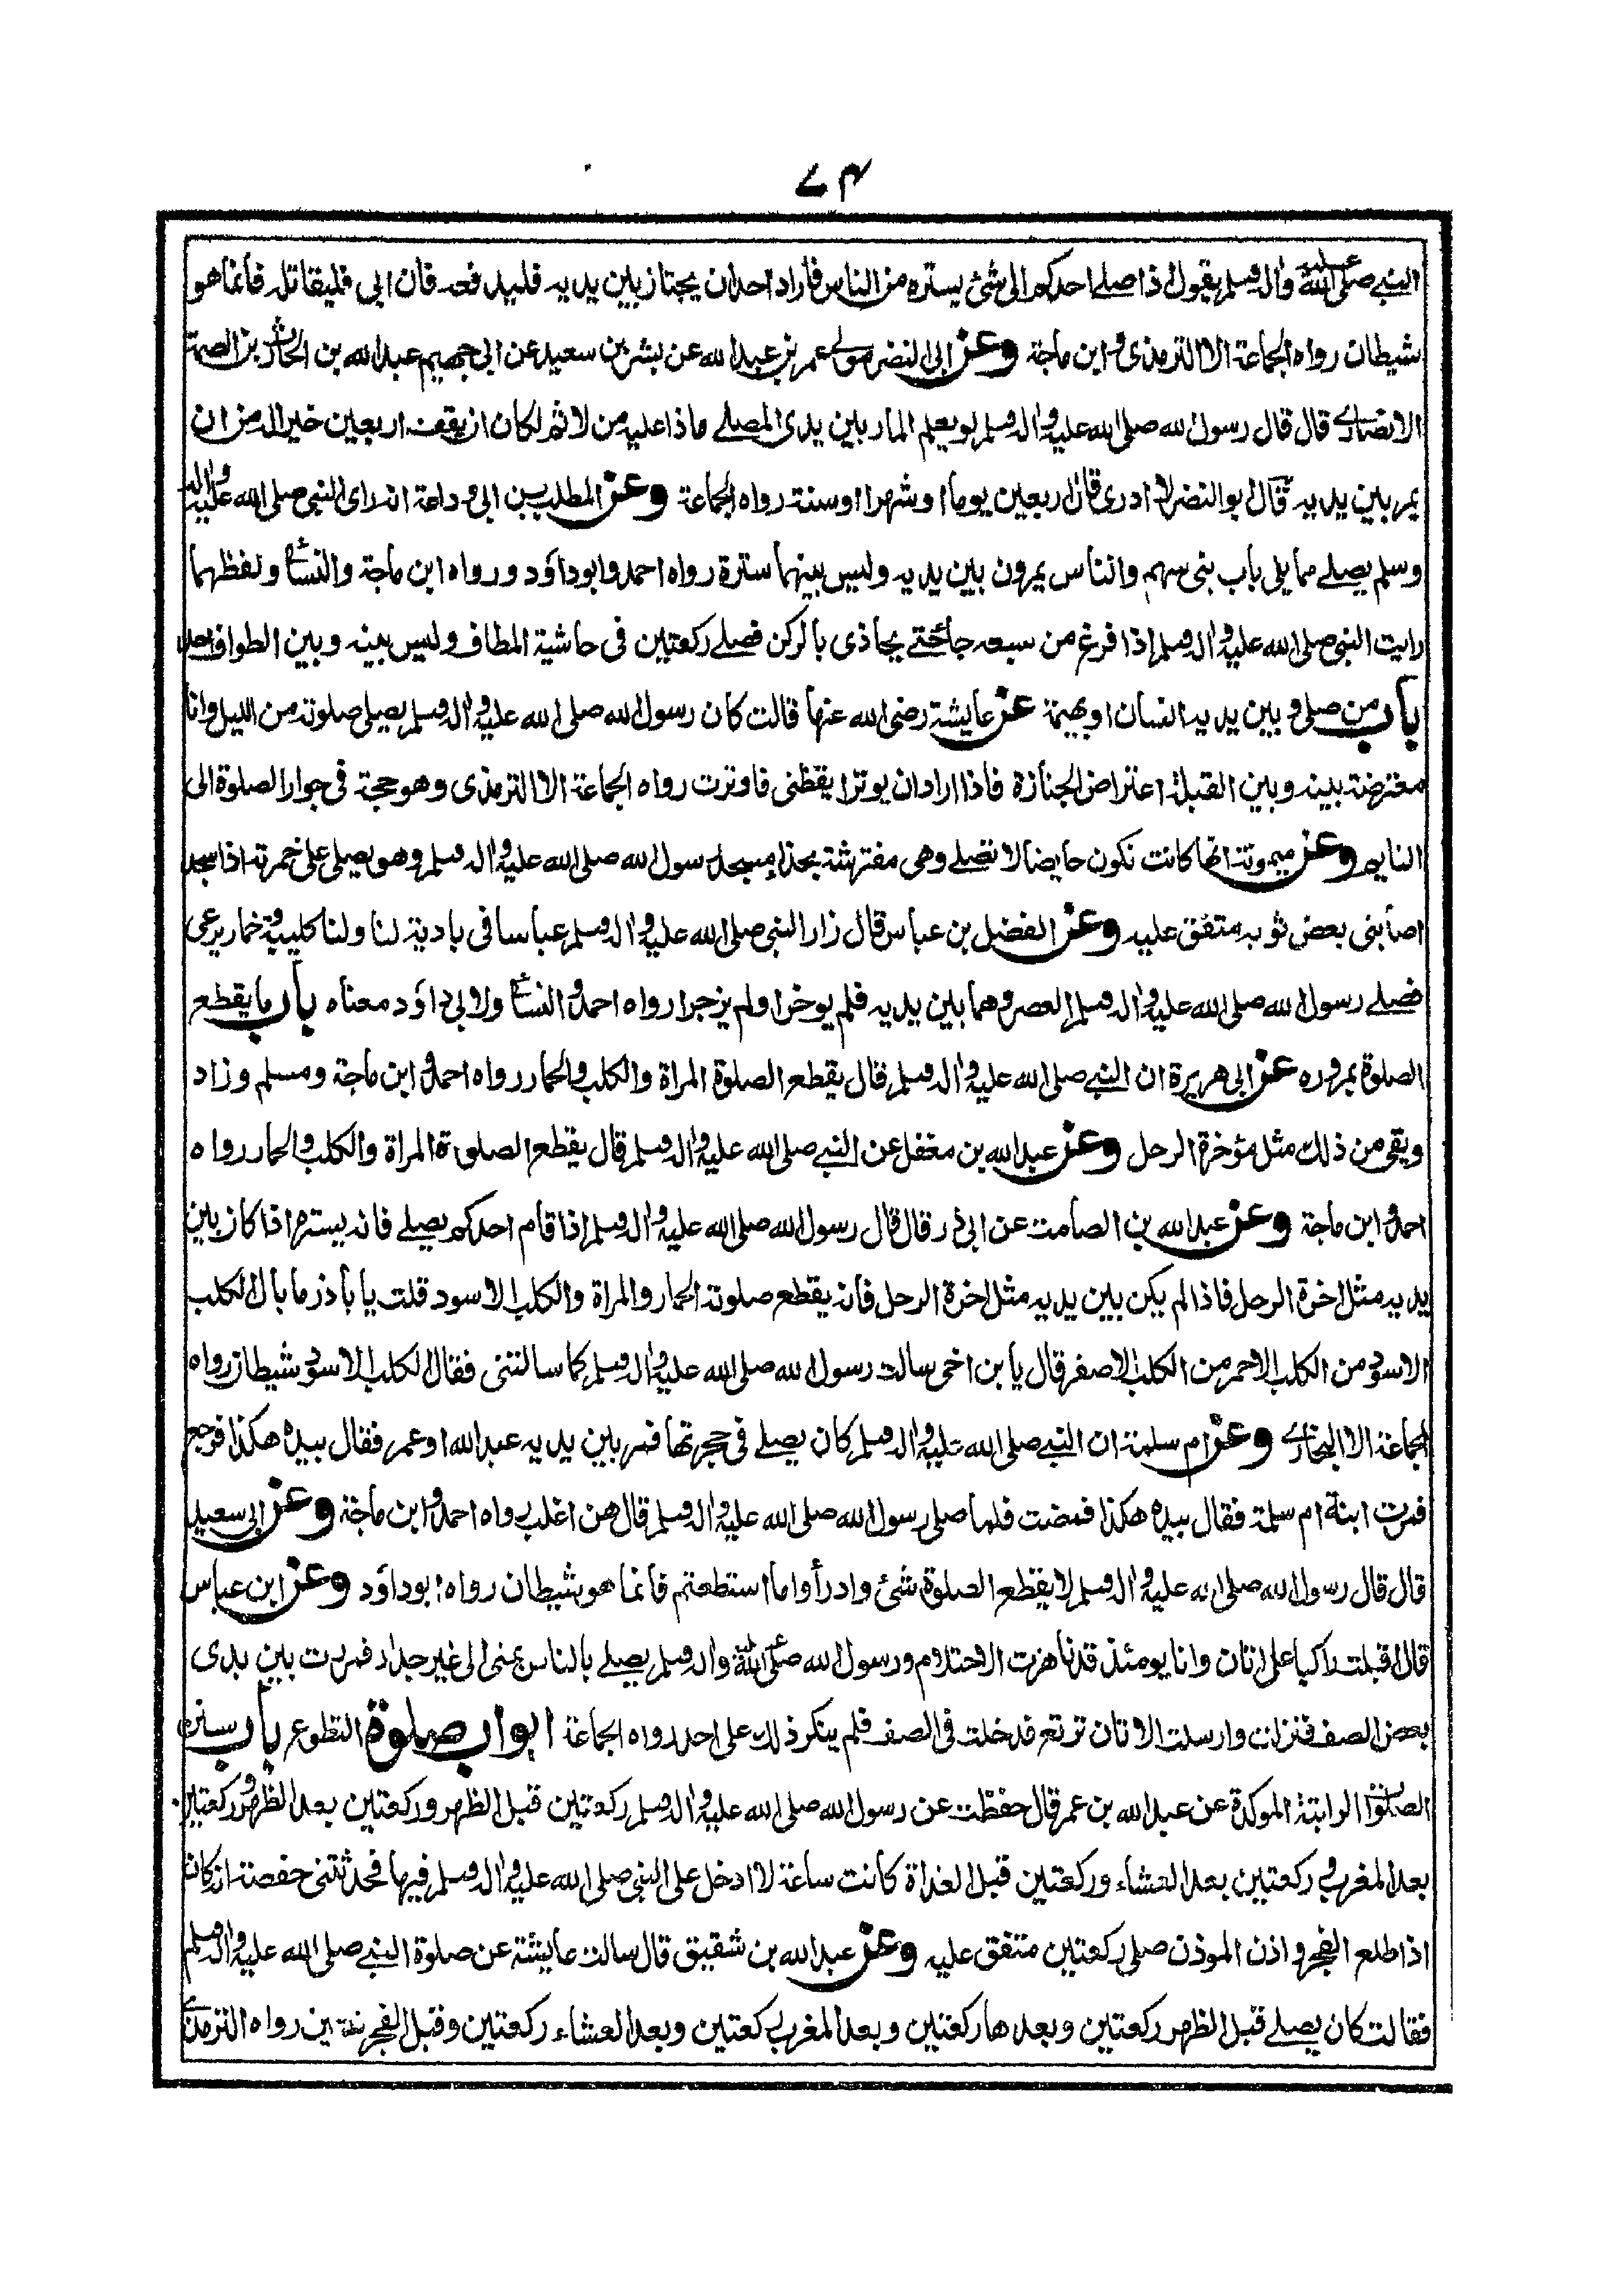 ٧٤
النبي صلى الله عليه واله وسلم يقول اذا صلى احدكم الى شئ يستره من الناس فاراد احد ان يجتاز بين يديه فليدفعه فان ابى فليقاتله فانما هو
شيطان رواه الجماعة الا الترمذى وابن ماجة وعن ابى النضر مولى عمر بن عبد الله عن بشر بن سعيد عن ابى جهيم عبد الله بن الحارث بن الصمة
الانصارى قال قال رسول الله صلى الله عليه واله وسلم لو يعلم المار بين يدى المصلى ماذا عليه من الاثم لكان ان يقف اربعين خير اله من ان
يمر بين يديه قال ابو النضر لا ادرى قال اربعين يوما او شهرا او سنة رواه الجماعة وعن المطلب بن ابى وداعة انه راى النبى صلى الله عليه واله
وسلم يصلى مما يلى باب بنى سهم والناس يمرون بين يديه وليس بينهما سترة رواه احمد وابو داؤد ورواه ابن ماجة والنسائى ولفظهما
رايت النبى صلى الله عليه واله وسلم اذا فرغ من سبعه جاء حتى يحاذى بالركن فصلى ركعتين فى حاشية المطاف وليس بينه وبين الطواف احد
باب من صلى وبين يديه انسان او بهيمة عن عايشة رضى الله عنها قالت كان رسول الله صلى الله عليه واله وسلم يصلى صلوته من الليل وانا
معترضة بينه وبين القبلة اعتراض الجنازة فاذا اراد ان يوتر ايقظنى فاوترت رواه الجماعة الا الترمذى وهو حجة فى جواز الصلوة الى
النايم وعن ميمونة انها كانت تكون حايضا لا تصلى وهى مفترشة بحذاء مسجد رسول الله صلى الله عليه واله وسلم وهو يصلى على خمرته اذا سجد
اصابنى بعض ثوبه متفق عليه وعن الفضل بن عباس قال زار النبى صلى الله عليه واله وسلم عباسا فى بادية لنا ولنا كليبة وحمار يرعى
فصلى رسول الله صلى الله عليه واله وسلم العصر وهما بين يديه فلم يوخرا ولم يزجرا رواه احمد والنسائى ولابى داؤد معناه باب ما يقطع
الصلوة بمروره عن ابى هريرة ان النبى صلى الله عليه واله وسلم قال يقطع الصلوة المراة والكلب والحمار رواه احمد وابن ماجة ومسلم وزاد
ويقى من ذلك مثل مؤخرة الرحل وعن عبد الله بن مغفل عن النبى صلى الله عليه واله وسلم قال يقطع الصلوة المراة والكلب والحمار رواه
احمد وابن ماجة وعن عبد الله بن الصامت عن ابى ذر قال قال رسول الله صلى الله عليه واله وسلم اذا قام احدكم يصلى فانه يستره اذا كان بين
يديه مثل اخرة الرحل فاذا لم يكن بين يديه مثل اخرة الرحل فانه يقطع صلوته الحمار والمراة والكلب الاسود قلت يا باذر ما بال الكلب
الاسود من الكلب الاحمر من الكلب الاصفر قال يا بن اخى سالت رسول الله صلى الله عليه واله وسلم كما سالتنى فقال الكلب الاسود شيطان رواه
الجماعة الا البخارى وعن ام سلمة ان النبى صلى الله عليه واله وسلم كان يصلى فى حجرتها فمر بين يديه عبد الله او عمر فقال بيده هكذا فرجع
فمرت ابنة ام سلمة فقال بيده هكذا فمضت فلما صلى رسول الله صلى الله عليه واله وسلم قال هن اغلب رواه احمد وابن ماجة وعن ابى سعيد
قال قال رسول الله صلى الله عليه واله وسلم لا يقطع الصلوة شئ وادرأوا ما استطعتم فانما هو شيطان رواه ابو داؤد وعن ابن عباس
قال اقبلت راكبا على اتان وانا يومئذ قد ناهزت الاحتلام ورسول الله صلى الله عليه واله وسلم يصلى بالناس بمنى الى غير جدار فمررت بين يدى
بعض الصف فنزلت وارسلت الاتان ترتع فدخلت فى الصف فلم ينكر ذلك على احد رواه الجماعة ابواب صلوة التطوع باب سنن
الصلوة الراتبة الموكدة عن عبد الله بن عمر قال حفظت عن رسول الله صلى الله عليه واله وسلم ركعتين قبل الظهر وركعتين بعد الظهر وركعتين
بعد المغرب وركعتين بعد العشاء وركعتين قبل الغداة كانت ساعة لا ادخل على النبى صلى الله عليه واله وسلم فيها فحدثتنى حفصة انه كان
اذا طلع الفجر واذن الموذن صلى ركعتين متفق عليه وعن عبد الله بن شقيق قال سالت عايشة عن صلوة النبى صلى الله عليه واله وسلم
فقالت كان يصلى قبل الظهر ركعتين وبعدها ركعتين وبعد المغرب ركعتين وبعد العشاء ركعتين وقبل الفجر ثنتين رواه الترمذى